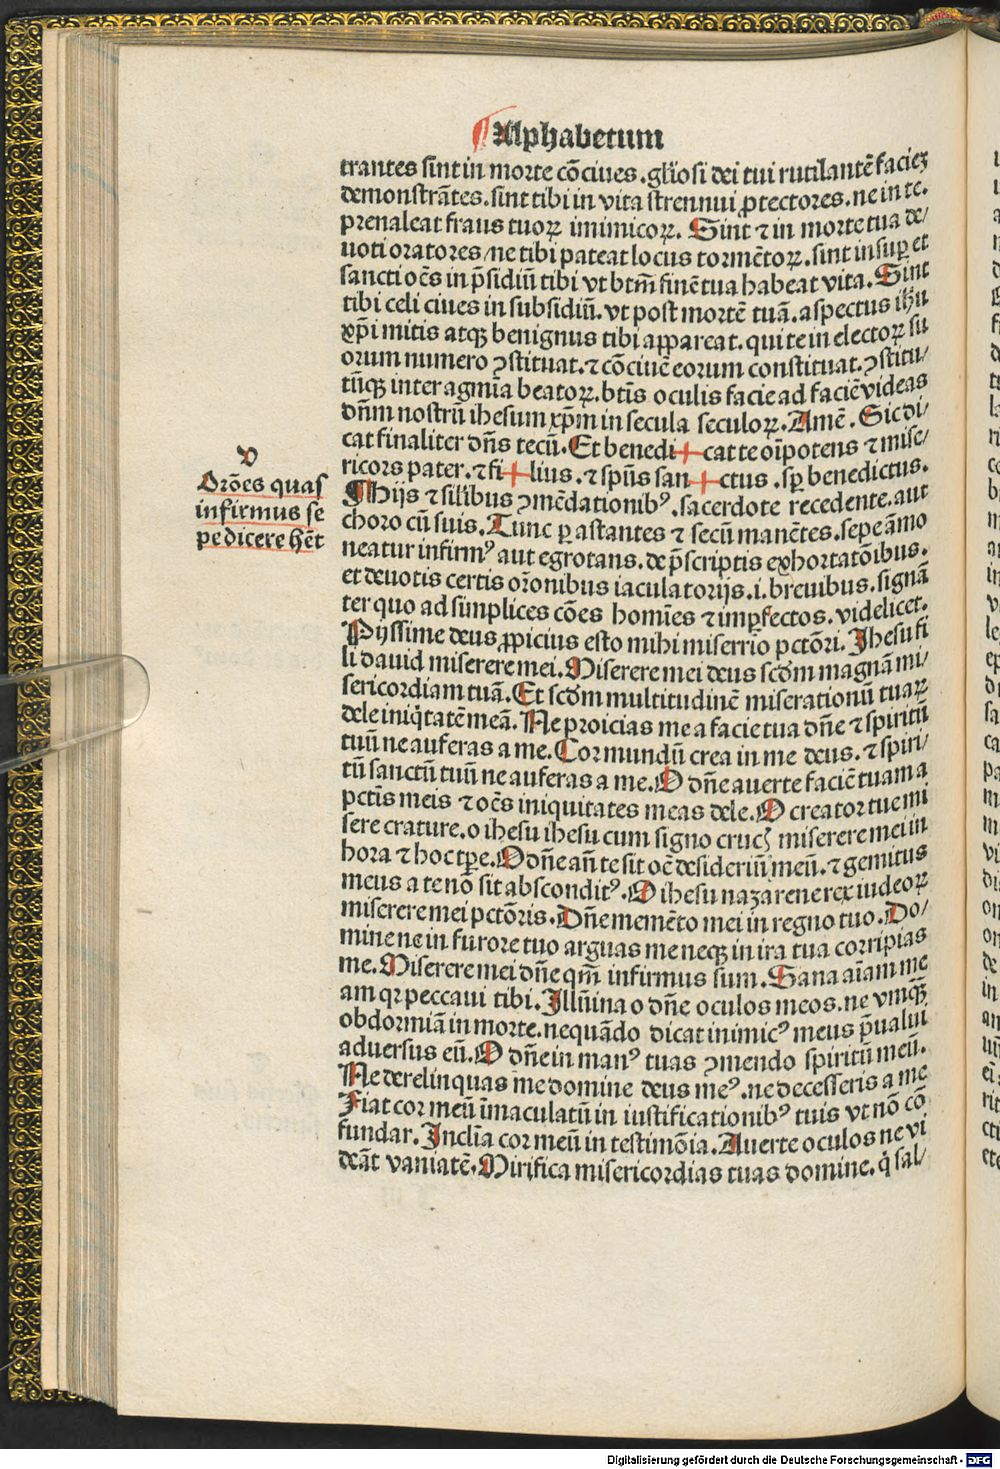 Alphabetum
trantes sint in morte cōciues. gl'iosi dei tui rutilantē facieꝫ
demonstrātes. sint tibi in vita strennui ꝓtectores. ne in te.
preualeat fraus tuoꝝ inimicoꝝ. Sint ⁊ in morte tua de/
uoti oratores/ne tibi pateat locus tormētoꝝ. sint insuꝑ et
sancti oēs in p̄sidiū tibi vt btm̄ finē tua habeat vita. Sint
tibi celi ciues in subsidiū. vt post mortē tuā. aspectus ihū
xp̄i mitis atqꝫ benignus tibi appareat. qui te in electoꝝ su
orum numero ꝯstituat. ⁊ cōciuē eorum constituat. ꝯstitu/
tūqꝫ inter agmīa beatoꝝ. btīs oculis facie ad faciē videas
dn̄m nostrū ihesum xp̄m in secula seculoꝝ. Amē. Sic di/
cat finaliter dn̄s tecū. Et benedi+cat te oīpotens ⁊ mise/
ricors pater. ⁊ fi+lius. ⁊ spūs san+ctus. sꝑ benedictus.
V
Orōes quas
infirmus se
pe dicere hēt
Hijs ⁊ silibus ꝯmēdationibꝰ. sacerdote recedente. aut
choro cū suis. Tunc ꝑ astantes ⁊ secū manētes. sepe āmo
neatur infirmꝰ aut egrotans. de p̄scriptis exhortatōibus.
et deuotis certis orōnibus iaculatorijs. i. breuibus. signā
ter quo ad simplices cōes homīes ⁊ imꝑfectos. videlicet.
Pijssime deus ꝓpicius esto mihi miserrīo pctōri. Jhesu fi
li dauid miserere mei. Miserere mei deus scd̄m magnā mi/
sericordiam tuā. Et scd̄m multitudinē miserationū tuaꝝ
dele iniq̇tatē meā. Ne proicias me a facie tua dn̄e ⁊ spiritū
tuū ne auferas a me. Cor mundū crea in me deus. ⁊ spiri/
tū sanctū tuū ne auferas a me. O dn̄e auerte faciē tuam a
pctīs meis ⁊ oēs iniquitates meas dele. O creator tue mi
sere crature. o ihesu ihesu cum signo crucꝭ miserere mei in
hora ⁊ hoc tꝑe. O dn̄e an̄ te sit oē desideriū meū. ⁊ gemitus
meus a te nō sit absconditꝰ. O ihesu nazarene rex iudeoꝝ
miserere mei pctōris. Dn̄e memēto mei in regno tuo. Do/
mine ne in furore tuo arguas me neqꝫ in ira tua corripias
me. Miserere mei dn̄e qm̄ infirmus sum. Sana aīam me
am qꝛ peccaui tibi. Illūina o dn̄e oculos meos. ne vmqꝫ̄
obdormiā in morte. nequādo dicat inimicꝰ meus p̄ualui
aduersus eū. O dn̄e in manꝰ tuas ꝯmendo spiritū meū.
Ne derelinquas me domine deus meꝰ. ne decesseris a me
Fiat cor meū īmaculatū in iustificationibꝰ tuis vt nō cō
fundar. Inclīa cor meū in testimōia. Auerte oculos ne vi
deāt vaniatē. Mirifica misericordias tuas domine. q̇ sal/
Digitalisierung gefördert durch die Deutsche Forschungsgemeinschaft - DFG